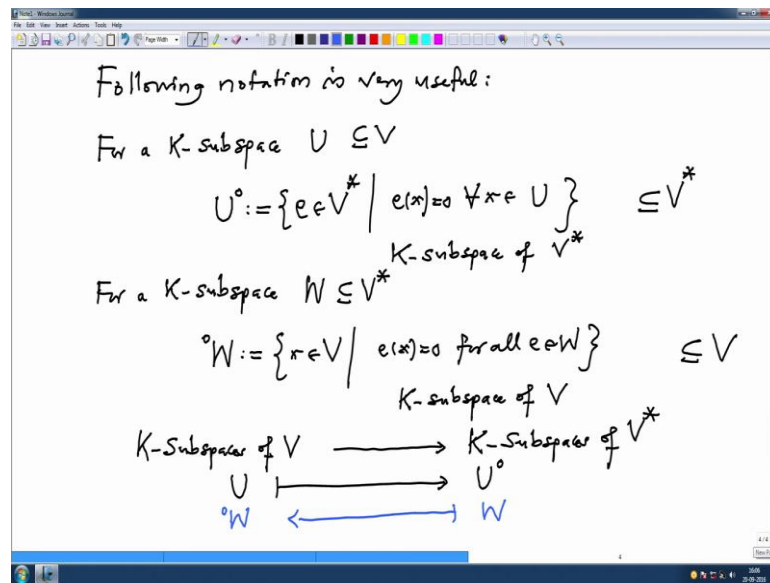 Note1 - Windows Journal
File Edit View Insert Actions Tools Help
Page Width
B I
Following notation is very useful:
For a K-subspace U ⊆ V
U° := {e ∈ V* | e(x)=0 ∀ x ∈ U} ⊆ V*
K-subspace of V*
For a K-subspace W ⊆ V*
°W := {x ∈ V | e(x)=0 for all e ∈ W} ⊆ V
K-subspace of V
K-Subspaces of V ⟶ K-Subspaces of V*
U ⟼ U°
°W ⟻ W
4
4/4
16:06